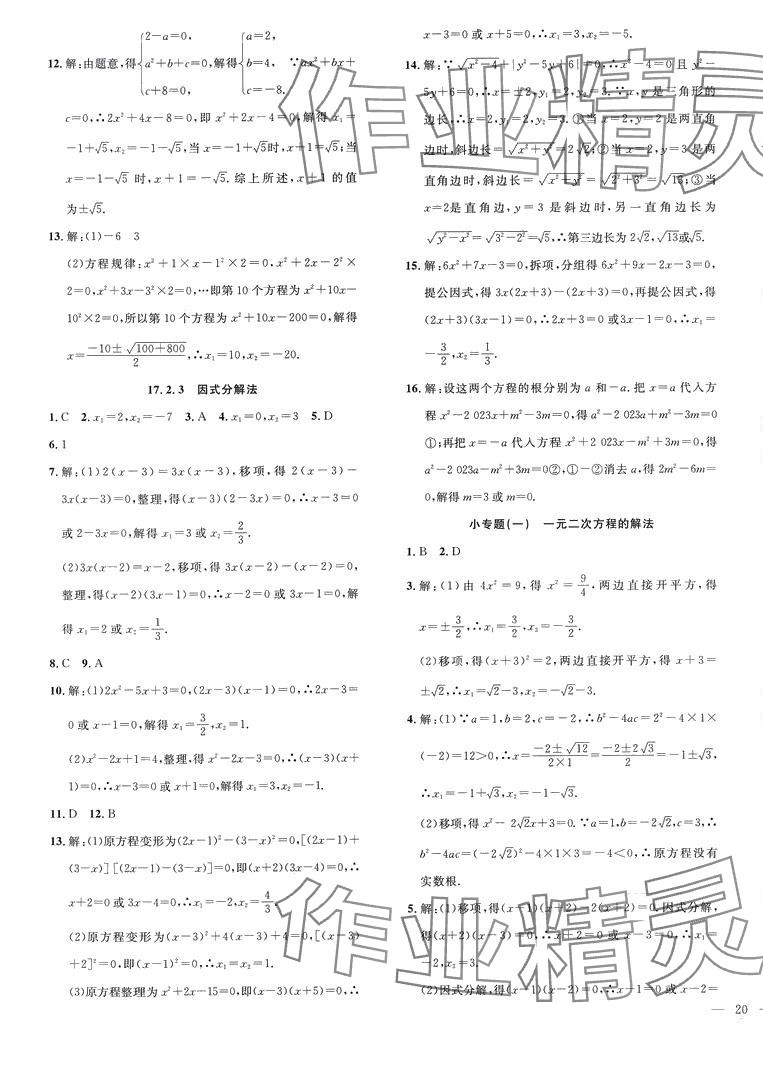 12. 解:由题意,得{2-a=0, a²+b+c=0, c+8=0, 解得{a=2, b=4, c=-8. ∵ax²+bx+
c=0,∴2x²+4x-8=0,即 x²+2x-4=0,解得 x=
-1+√5 或 x=-1-√5,当 x=-1+√5时,x+1=√5;当
x=-1-√5 时,x+1=-√5.综上所述,x+1 的值
为±√5.
13. 解:(1)-6 3
(2)方程规律:x²+1×x-1²×2=0,x²+2x-2²×
2=0,x²+3x-3²×2=0,…即第 10 个方程为 x²+10x-
10²×2=0,所以第 10 个方程为 x²+10x-200=0,解得
x=(-10±√(100+800))/2,∴x₁=10,x₂=-20.
17.2.3 因式分解法
1. C 2. x₁=2,x₂=-7 3. A 4. x₁=0,x₂=3 5. D
6. 1
7. 解:(1)2(x-3)=3x(x-3),移项,得 2(x-3)-
3x(x-3)=0,整理,得(x-3)(2-3x)=0,∴x-3=0
或 2-3x=0,解得 x₁=3 或 x₂=2/3.
(2)3x(x-2)=x-2,移项,得 3x(x-2)-(x-2)=0,
整理,得(x-2)(3x-1)=0,∴x-2=0 或 3x-1=0,解
得 x₁=2 或 x₂=1/3.
8. C 9. A
10. 解:(1)2x²-5x+3=0,(2x-3)(x-1)=0,∴2x-3=
0 或 x-1=0,解得 x₁=3/2,x₂=1.
(2)x²-2x+1=4,整理,得 x²-2x-3=0,∴(x-3)(x+
1)=0,∴x-3=0 或 x+1=0,解得 x₁=3,x₂=-1.
11. D 12. B
13. 解:(1)原方程变形为(2x-1)²-(3-x)²=0,[(2x-1)+
(3-x)][(2x-1)-(3-x)]=0,即(x+2)(3x-4)=0,∴
x+2=0 或 3x-4=0,∴x₁=-2,x₂=4/3.
(2)原方程变形为(x-3)²+4(x-3)+4=0,[(x-3)
+2]²=0,即(x-1)²=0,∴x₁=x₂=1.
(3)原方程整理为 x²+2x-15=0,(x-3)(x+5)=0,∴
x-3=0 或 x+5=0,∴x₁=3,x₂=-5.
14. 解:∵√(x²-4)+|y²-5y+6|=0,∴x²-4=0 且 y²-
5y+6=0,∴x=±2,y₁=2,y₂=3.∵x,y 是三角形的
边长,∴x=2,y₁=2,y₂=3.①当 x=2,y=2 是两直角
边时,斜边长=√(x²+y²)=2√2;②当 x=2,y=3 是两
直角边时,斜边长=√(x²+y²)=√(2²+3²)=√13;③当
x=2是直角边,y=3 是斜边时,另一直角边长为
√(y²-x²)=√(3²-2²)=√5,∴第三边长为 2√2,√13或√5.
15. 解:6x²+7x-3=0,拆项,分组得 6x²+9x-2x-3=0,
提公因式,得 3x(2x+3)-(2x+3)=0,再提公因式,得
(2x+3)(3x-1)=0,∴2x+3=0 或3x-1=0,∴x₁=
-3/2,x₂=1/3.
16. 解:设这两个方程的根分别为 a 和-a.把 x=a 代入方
程 x²-2 023x+m²-3m=0,得 a²-2 023a+m²-3m=0
①;再把 x=-a 代入方程 x²+2 023x-m²+3m=0,得
a²-2 023a-m²+3m=0②,①-②消去 a,得 2m²-6m=
0,解得 m=3 或 m=0.
小专题(一) 一元二次方程的解法
1. B 2. D
3. 解:(1)由 4x²=9,得 x²=9/4.两边直接开平方,得
x=±3/2,∴x₁=3/2,x₂=-3/2.
(2)移项,得(x+3)²=2,两边直接开平方,得 x+3=
±√2,∴x₁=√2-3,x₂=-√2-3.
4. 解:(1)∵a=1,b=2,c=-2,∴b²-4ac=2²-4×1×
(-2)=12>0,∴x=(-2±√12)/(2×1)=(-2±2√3)/2=-1±√3,
∴x₁=-1+√3,x₂=-1-√3.
(2)移项,得 x²-2√2x+3=0.∵a=1,b=-2√2,c=3,∴
b²-4ac=(-2√2)²-4×1×3=-4<0,∴原方程没有
实数根.
5. 解:(1)移项,得(x-1)(x+2)-2(x+2)=0.因式分解,
得(x+2)(x-3)=0,∴x+2=0 或 x-3=0,∴x₁=
-2,x₂=3.
(2)因式分解,得(x-1)(x-2)=0,∴x-1=0 或 x-2=
— 20 —
作业精灵
作业精灵